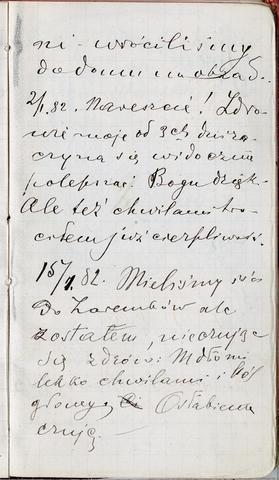 ni - wróciliśmy
do domu na obiad.
2/1.82. Nareszcie! Zdro-
wie moje od 3ch dni za-
czyna się widocznie
polepszać. Bogu dzięk.
Ale też chwilami tra-
ciłem już cierpliwość.
15/1.82. Mieliśmy iść
Do Zarembów ale
zostałem, nieczując
się zdrów. Mdło mi
lekko chwilami i ból
głowy. Osłabienie
czuję.